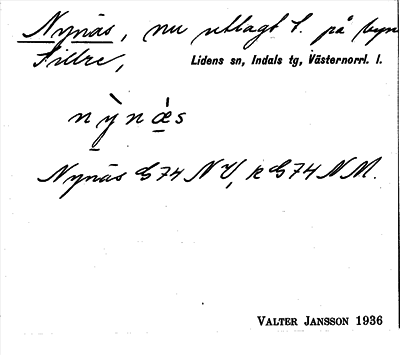 Nynäs, nu utlagt l. på byn
Sillre,
Lidens sn, Indals tg, Västernorrl. l.
nỳnä́s
Nynäs G74 NV, k G74 NM.
VALTER JANSSON 1936